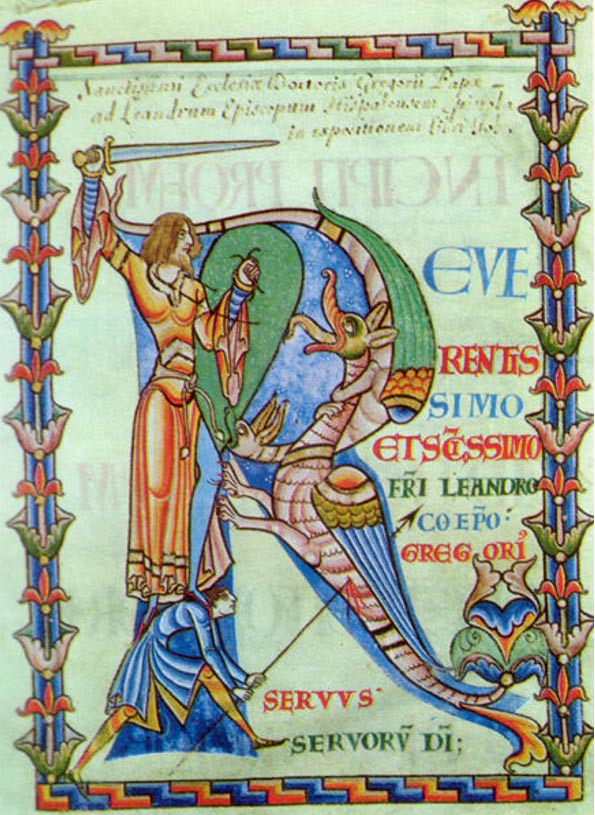 Sanctissimi Ecclesiæ Doctoris Gregorii Papæ
ad Leandrum Episcopum Hispalensem
in expositionem libri Job.
R EVE
RENTIS
SIMO
ET SC̄ISSIMO
FR̄I LEANDRO
COEP̄O·
GREGORI᾿
SERVVS·
SERVORV̄ DĪ;